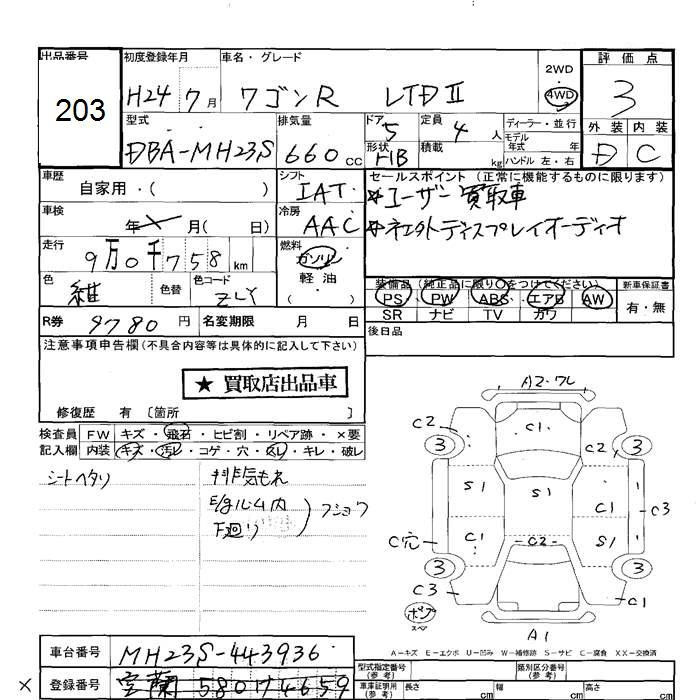 出品番号
203
初度登録年月
H24 7月
車名・グレード
ワゴンR LTD II
2WD
4WD
評価点
3
型式
DBA-MH23S
排気量
660cc
ドア
5
定員
4人
ディーラー・並行
モデル年式 年
ハンドル 左・右
形状
HB
積載
kg
外装 内装
D C
車歴
自家用・( )
シフト
IAT
セールスポイント(正常に機能するものに限ります)
*ユーザー買取車
車検
年 月( 日)
冷房
AAC
走行
9万0千758km
燃料
ガソリン
軽油
( )
色
紺
色替
色コード
ZLY
装備品(純正品に限り○をつけてください)
PS PW ABS エアB AW
SR ナビ TV カワ
新車保証書
有・無
R券 9780円
名変期限 月 日
後日品
注意事項申告欄(不具合内容等は具体的に記入して下さい)
★ 買取店出品車
修復歴 有〔箇所 〕
検査員
記入欄
FW キズ・飛石・ヒビ割・リペア跡・×要
内装 キズ・汚レ・コゲ・穴・スレ・キレ・破レ
シートヘタリ
排気もれ
E/gルーム内
下廻り
フショク
A2・フレ
C2 C1 C2
3 3
S1 S1 C1 C3
C穴 C1 C2 S1
3 3
C3 C1
ポンプ
スペア
A1
A-キズ E-エクボ U-凹み W-補修跡 S-サビ C-腐食 XX-交換済
車台番号 MH23S-443936
× 登録番号 室蘭 580 ナ4659
型式指定番号
(参考)
類別区分番号
(参考)
車庫証明用
(参考)
長さ cm
幅 cm
高さ cm